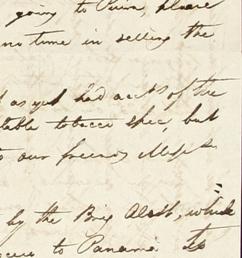 going to Piura, please
no time in selling the
as yet had accts of the
table tobacco spec, but
to our friends Messrs
by the Brig Alert, which
to Panama to